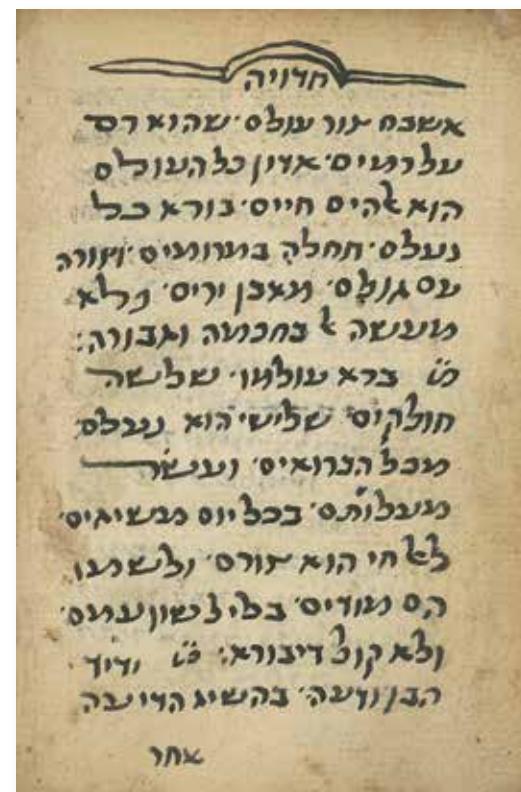 חדויה
אשבח צור עולם· שהוא רם
על רמים· אדון כל העולם
הוא אלהים חיים· בורא כל
נעלם· תחלה במרומים· וצורה
עם גולם· מאבן יריס· פלא
מעשה אל בחכמה וגבורה:
ברא עולמו· שלשה
חולקים· שלישי הוא נעלם
מכל הברואים· ועשר
מעלותם· בכל יום מנשיאים·
לאל חי הוא צורם· ולשמו
הם מודים· בלי לשון עמם·
ולא קול דיבורא:
הבן ודעה· בהשיג הדיעה
אחר